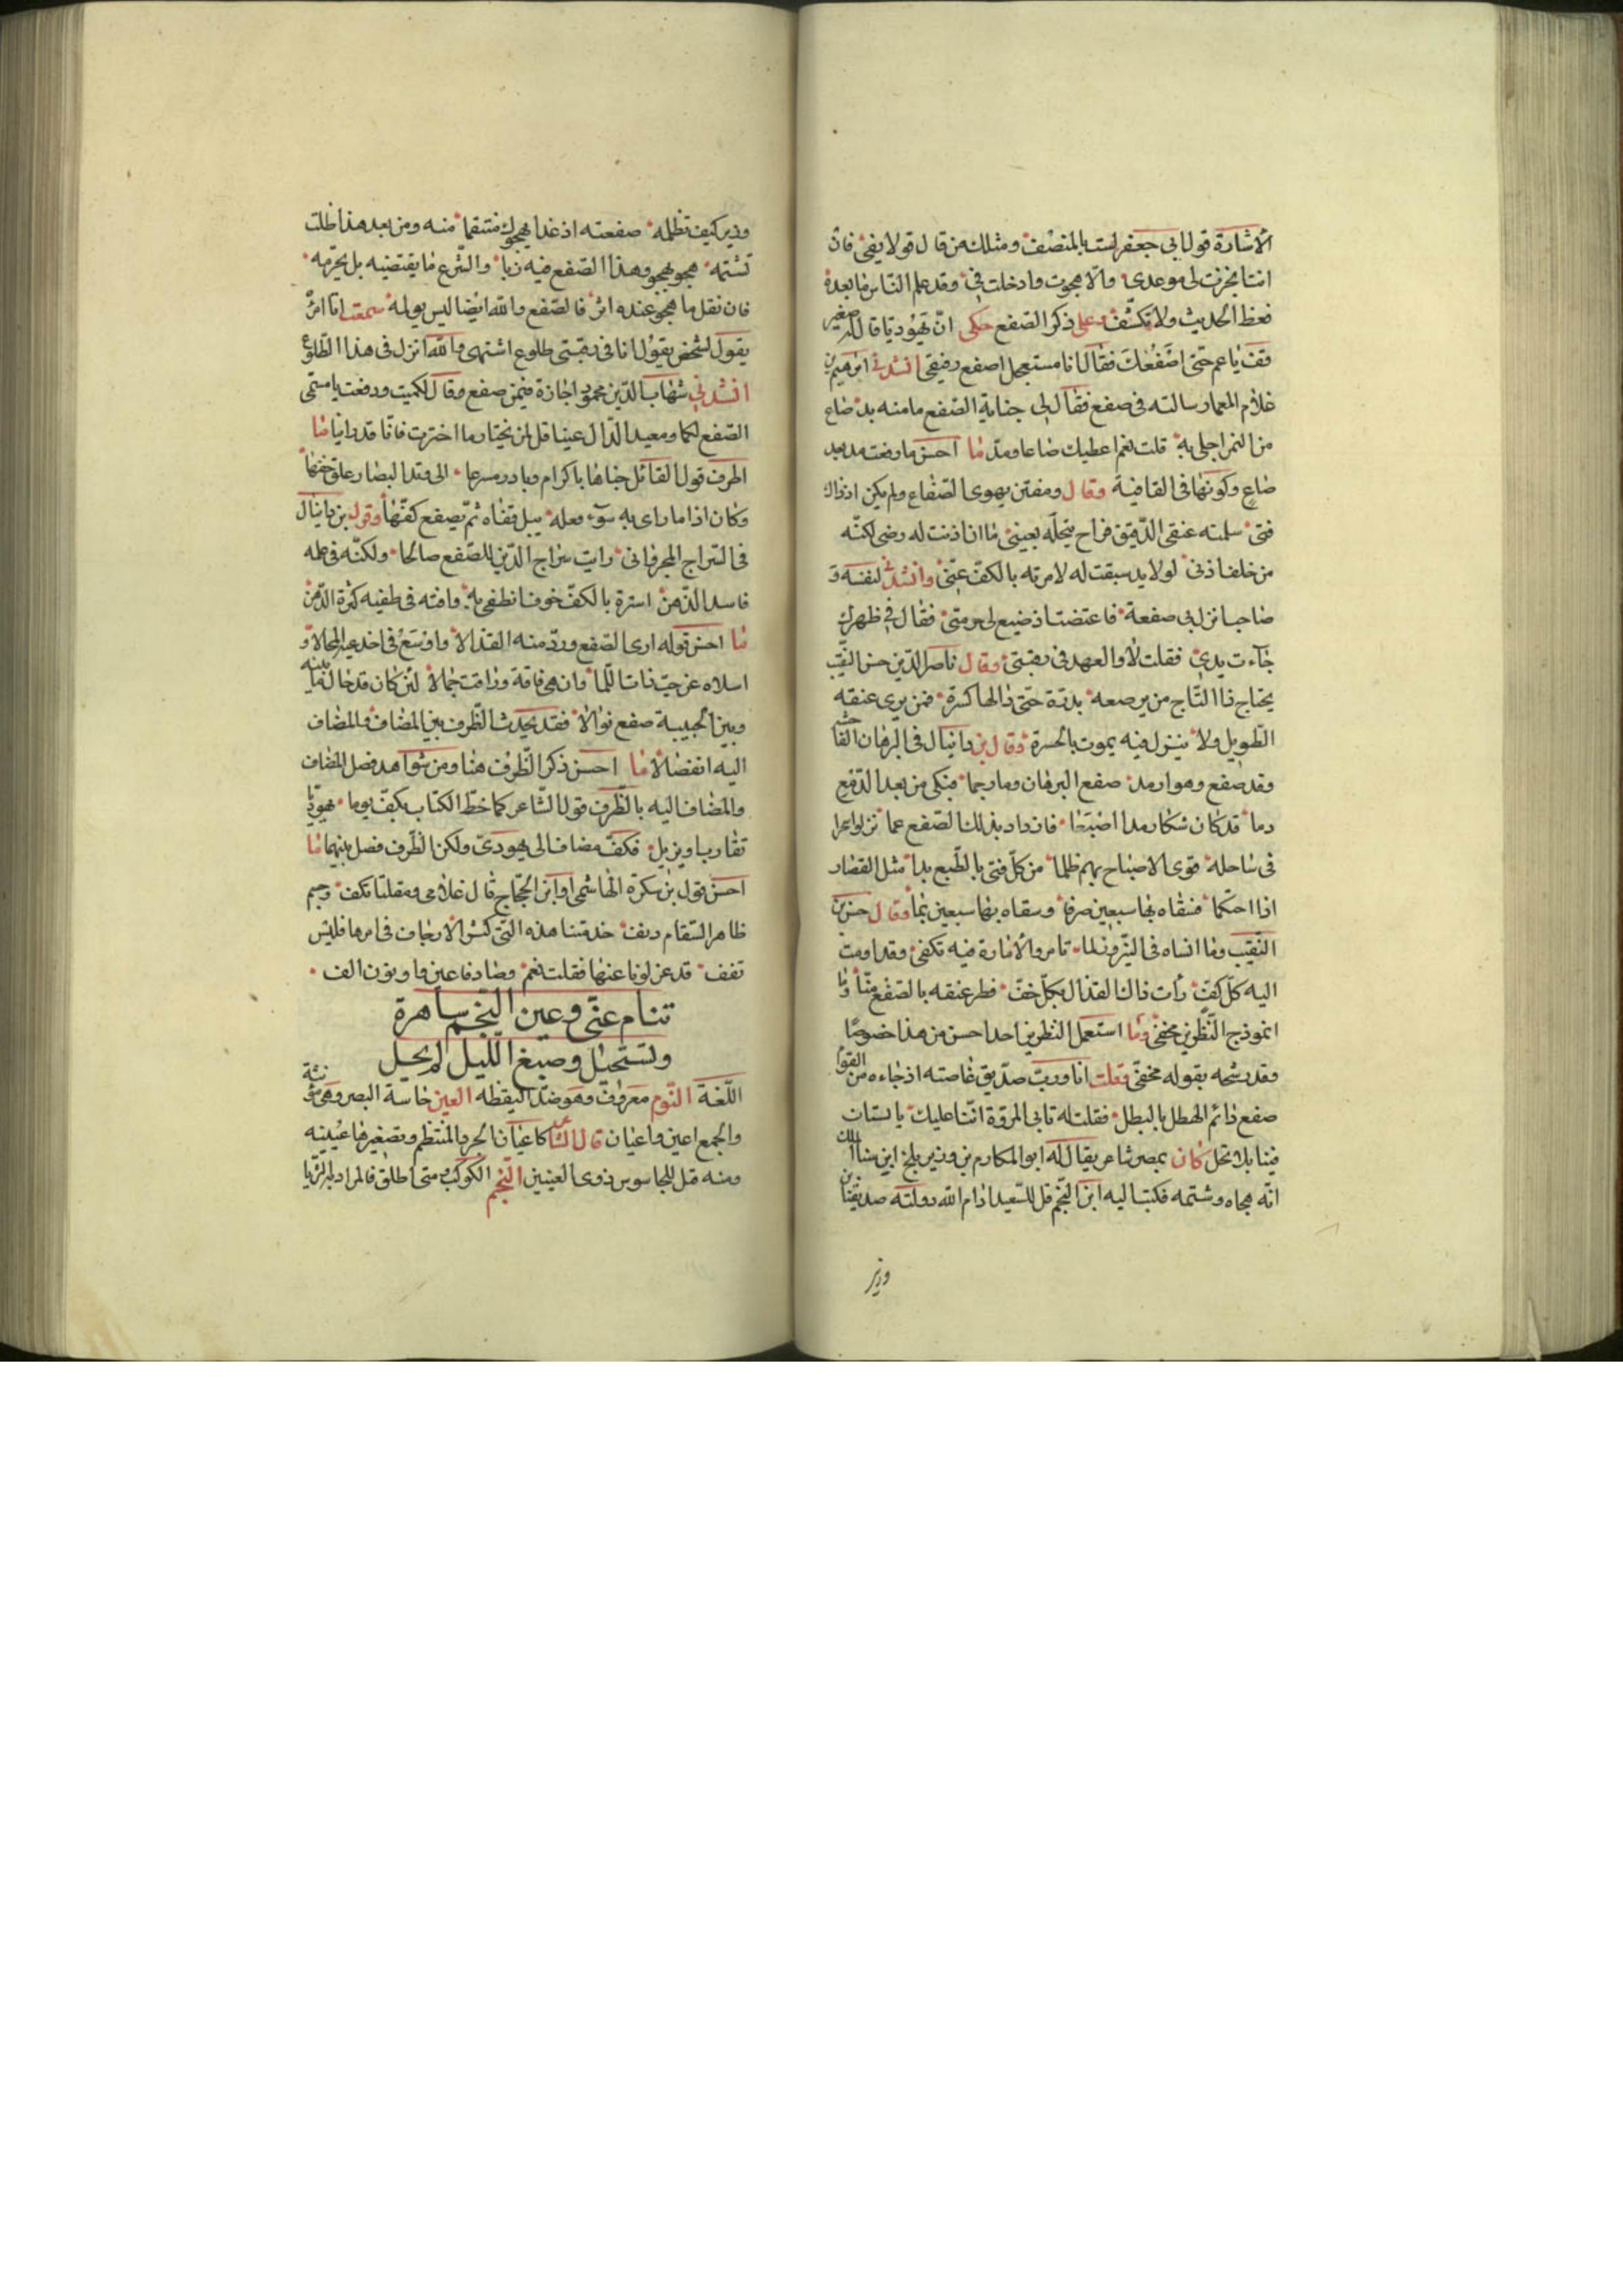 الأشارة قول ابي جعفر لست بالمنصف ومثلك من قال قولا يفي فان
انت انجزت لي موعدي والا هجوت وادخلت في وقد علم الناس ما بعده
فغط الحديث ولا تكشف وعلى ذكر الصفع حكى ان يهوديا قال له صغير
قف يا عم حتى اصفعك فقال انا مستعجل اصفع رفيقي انشدني ابراهيم بن
غلام المعمار سالته في صفع فقال لي جناية الصفع ما منه بد صاع
من التمر اجلى به قلت نعم اعطيك صاعا ومد ما احسن ما وقعت مد بعد
صاع وكونها في القافية وقال ومفتن يهوى الصفاع ولم يكن اذ ذاك
فني سلمته عنقي الدقيق فراح ينخله بعيني ما انا اذنت له رضي لكنه
من خلف اذني لو لا يد سبقت له لامرته بالكف عني وانشدني لنفسه و
صاحب انزل بي صفعة فاعتضت اذ ضيع لي حرمتي فقال في ظهرك
جاءت يدي فقلت لا والعهد في رقبتي وقال ناصر الدين حسن النقيب
يحتاج ذا التاج من يرصعه بدرة حتى دالها كسرة فمن يرى عنقه
الطويل ولا ينزل فيه يموت بالحسرة وقال بن دانيال في البرهان الفاحشة
وقد صفع وهو ارمد صفع البرهان وما رحما فبكى من بعد الدفع
دما قد كان شكا رمدا اصبتها فازداد بذلك الصفع عما نزلوا عرا
في ساحله قوى الاصباح بهم ظلما من كل فتى بالطبع بدا مثل القصار
اذا احتكما فسقاه بها سبعين صرفا وسقاه بها سبعين بما وقال حسن بن
النقيب وما انساه في النيروز لما تامر والأمارة فيه تكفي وقد اومت
اليه كل كف رأت ذاك القذال بكل خف فطر عنقه بالصفع منا ويا
انموذج النظرين مخفي وما استعمل النطرين احد احسن من هذا خصوصا
وقد رشحه بقوله مخفي وقلت انا وربّ صديق غاصته اذ جاءه من القوم
صفع دائم الهطل بالبطل فقلت له تابى المروة اننا عليك يا بستان
فينا بلا نخل كان بمصر شاعر يقال له ابو المكارم بن وزير بلغ ابن سناء الملك
انه هجاه وشتمه فكتب اليه ابن النجم قل للسعيد ادام الله دولته صديقنا بن
وزير
وزير كيف تظلمه صفعته اذ غدا يهجوك منتقما منه ومن بعد هذا ظلت
تشتمه هجو بهجو وهذا الصفع فيه ربا والشرع ما يقتضيه بل يحرمه
فان تقل ما لهجو عنده اثر فالصفع والله ايضا ليس يولمه سمعت انا امرأ
يقول لشخص يقول انا في رقبتي طلوع اشتهى والله انزل في هذا الطلوع
انشدني شهاب الدين محمود اجازة فيمن صفع وقال لكميت ودفعت يا مستمى
الصفع لكما ومعيد الدال عينا قل لمن نختار ما اخترت فانا قد رانيا ما
اظرف قول القائل حباها باكرام وبادر مسرعا الى وتد البصار علق خفها
وكان اذا ما راى به سوء فعله يبل قفاه ثم يصفع كفها وقول بن دانيال
في السراج المحرفاني رايت سراج الدين للصفع صالحا ولكنه في علمه
فاسد الذهن استره بالكف خوف انطفى به وافته في طفيه كثرة الدهن
ما احسن قوله ارى الصفع ورد منه القذالا واوسع في اخدعيه المجالا و
اسلاه عن حب ذات اللما وان هي فاقة وراقت جمالا لئن كان قد حال ما بينه
وبين الحبيبة صفع نوالا فقد يحدث الظرف بين المضاف والمضاف
اليه انفصالا ما احسن ذكر الظرف هنا ومن شواهد فصل المضاف
والمضاف اليه بالظرف قول الشاعر كما خط الكتاب بكف يوما يهودي
تقارب او يزيل فكف مضاف الى يهودي ولكن الظرف فصل بينهما ما
احسن قول بن سكرة الهاشمي او ابن الحجاج قال غلامي ومقلتا تكف وجسم
ظاهر السقام دنف خدمتنا هذه التي كنس الارجاف في امرها فليس
تقف قد عزلونا عنها فقلت نعم وصادفا عين واو نون الف
تنام عني وعين النجم ساهرة
وتستحيل وصبغ الليل لم يحل
اللغة النوم معروف وهو ضد اليقظه العين حاسة البصر وهي مؤنثة
والجمع اعين واعيان قال الشاعر كاعيان الجراد المنتظم وتصغيرها عيينه
ومنه قيل للجاسوس ذوى العينين النجم الكوكب ومتى اطلق فالمراد به الثريا